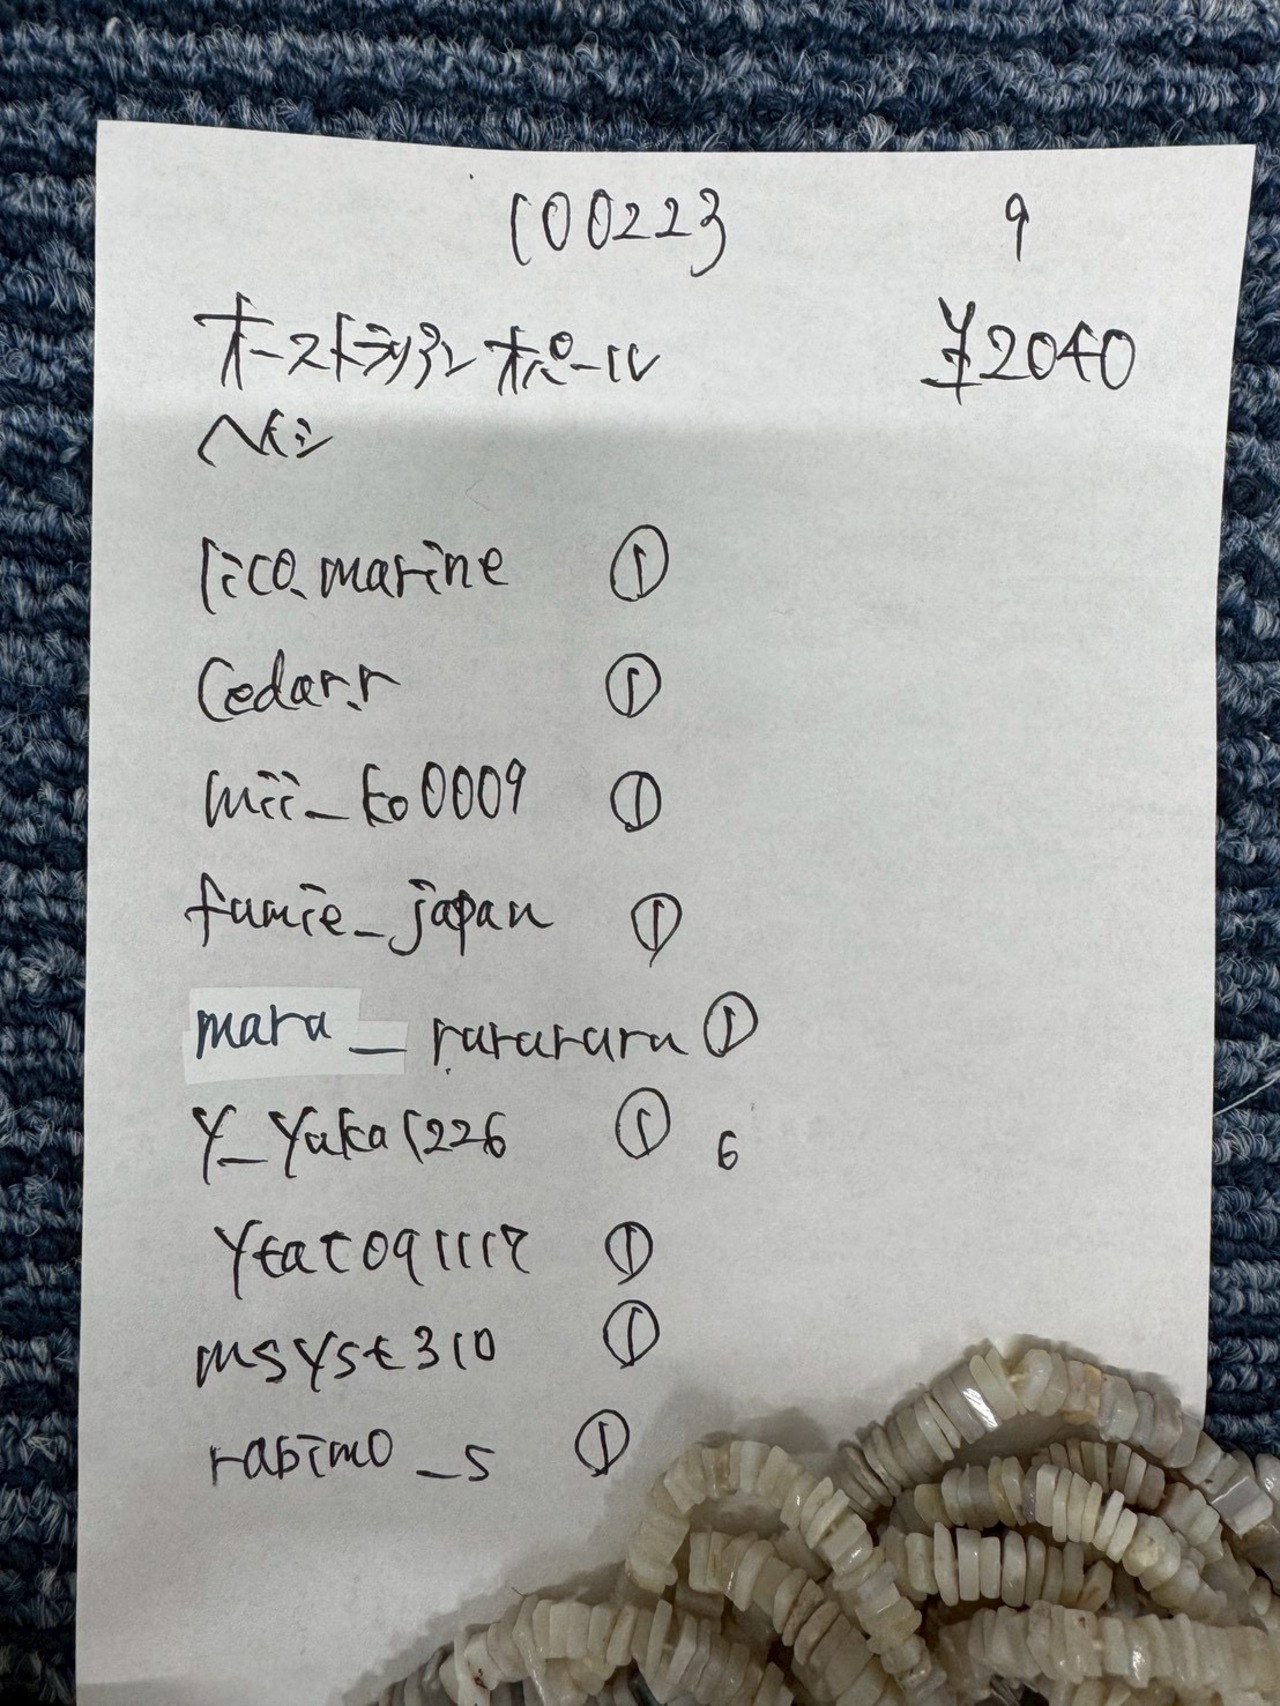 100223 9
オーストラリアン オパール ¥2040
ヘイシ
lico.marine ①
Cedar.r ①
mii_ko0009 ①
fumie_japan ①
mara_rararara ①
y_yuka1226 ① 6
ytat091117 ①
msyst310 ①
rabimo_s ①